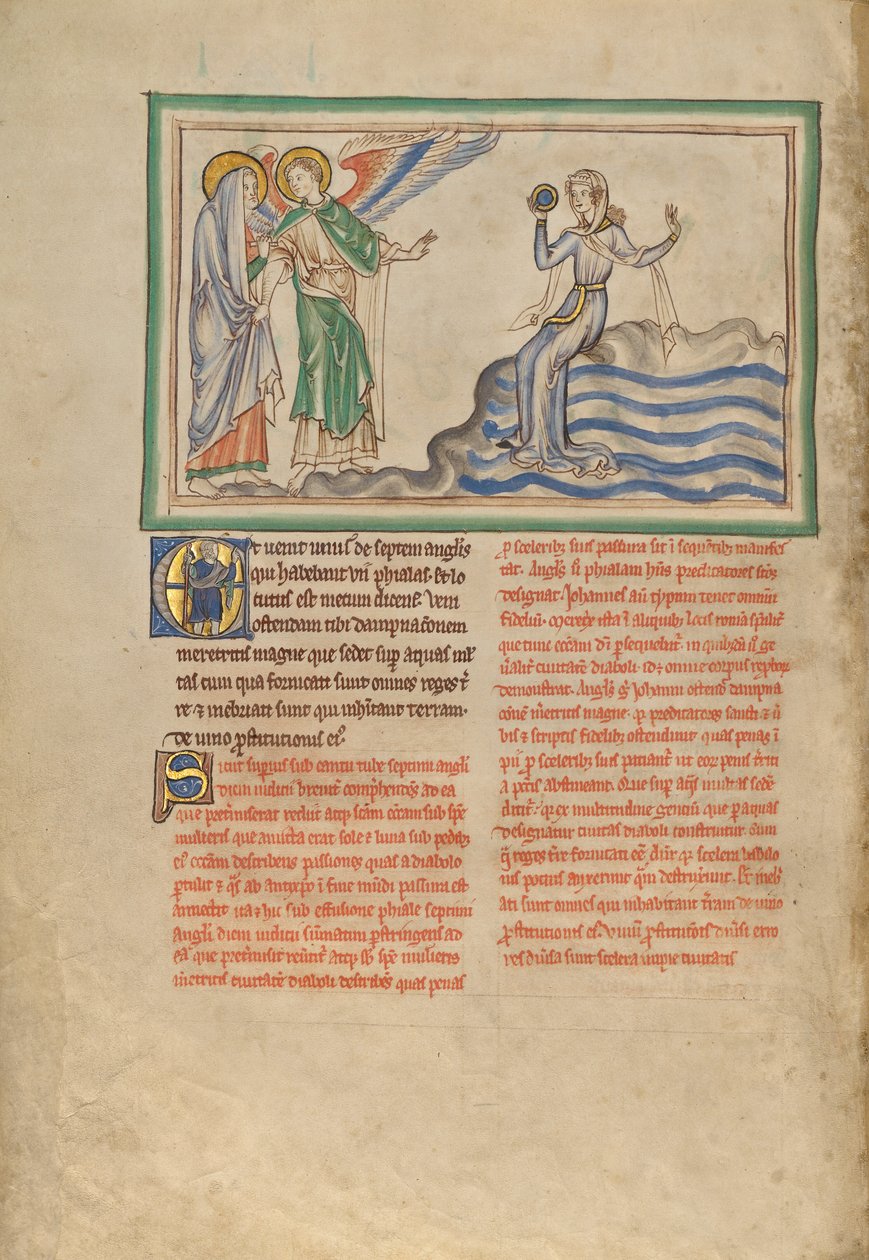 Et venit unus de septem angelis
qui habebant vii phialas. et lo
cutus est mecum dicens. Veni
ostendam tibi dampnaconem
meretricis magne que sedet sup aquas ml
tas cum qua fornicati sunt omnes reges tr
re ⁊ inebriati sunt qui inhitant terram.
de vino pstitutionis ei⁹.
Sicut superius sub cantu tube septimi angli
diem iudicii brevit comphendes ad ea
que ptermiserat rediit atq scam ecciam sub spe
mulieris que amicta erat sole ⁊ luna sub pedib⁹
ei⁹ ecciam describens passiones quas a diabolo
ptulit ⁊ qs ab antixpo i fine mudi passura est
annectit ita ⁊ hic sub effusione phiale septimi
angli diem iudicii summatim pstringens ad
ea que ptermisit revtit atq sb spe mulieris
metricis civitate diaboli describes quas penas
p sceleribz suis passura sit i sequetibz manifes
tat. Angls phialam hns predicatores scos
designat. Iohannes au typum tenet omnium
fidelium. Meretrix ista i aliquibz locis romā spalit
que tunc ecciam di psequebtr. in quibzda ge
nalit civitate diaboli. id ⁊ omne corpus reprobor
demonstrat. Angls g iohanni ostendit dampna
cone metricis magne. qr predicatores sancti ⁊ v
bis ⁊ scriptis fidelibz ostendunt quas penas i
pii p sceleribz suis patiant ut eor penis triti
a pctis abstineant. Que sup aqs multas sede
dicitr. qr ex multitudine gencium que p aquas
designatur civitas diaboli construitur. Cum
q reges tre fornicati ee dnr qr scelera babilo
nis potius auxerunt qm destruxerunt. Et inebri
ati sunt omnes qui inhabitant tram de vino
pstitutionis ei⁹. Vinum pstitutois divsi erro
res divsa sunt scelera impie civitatis